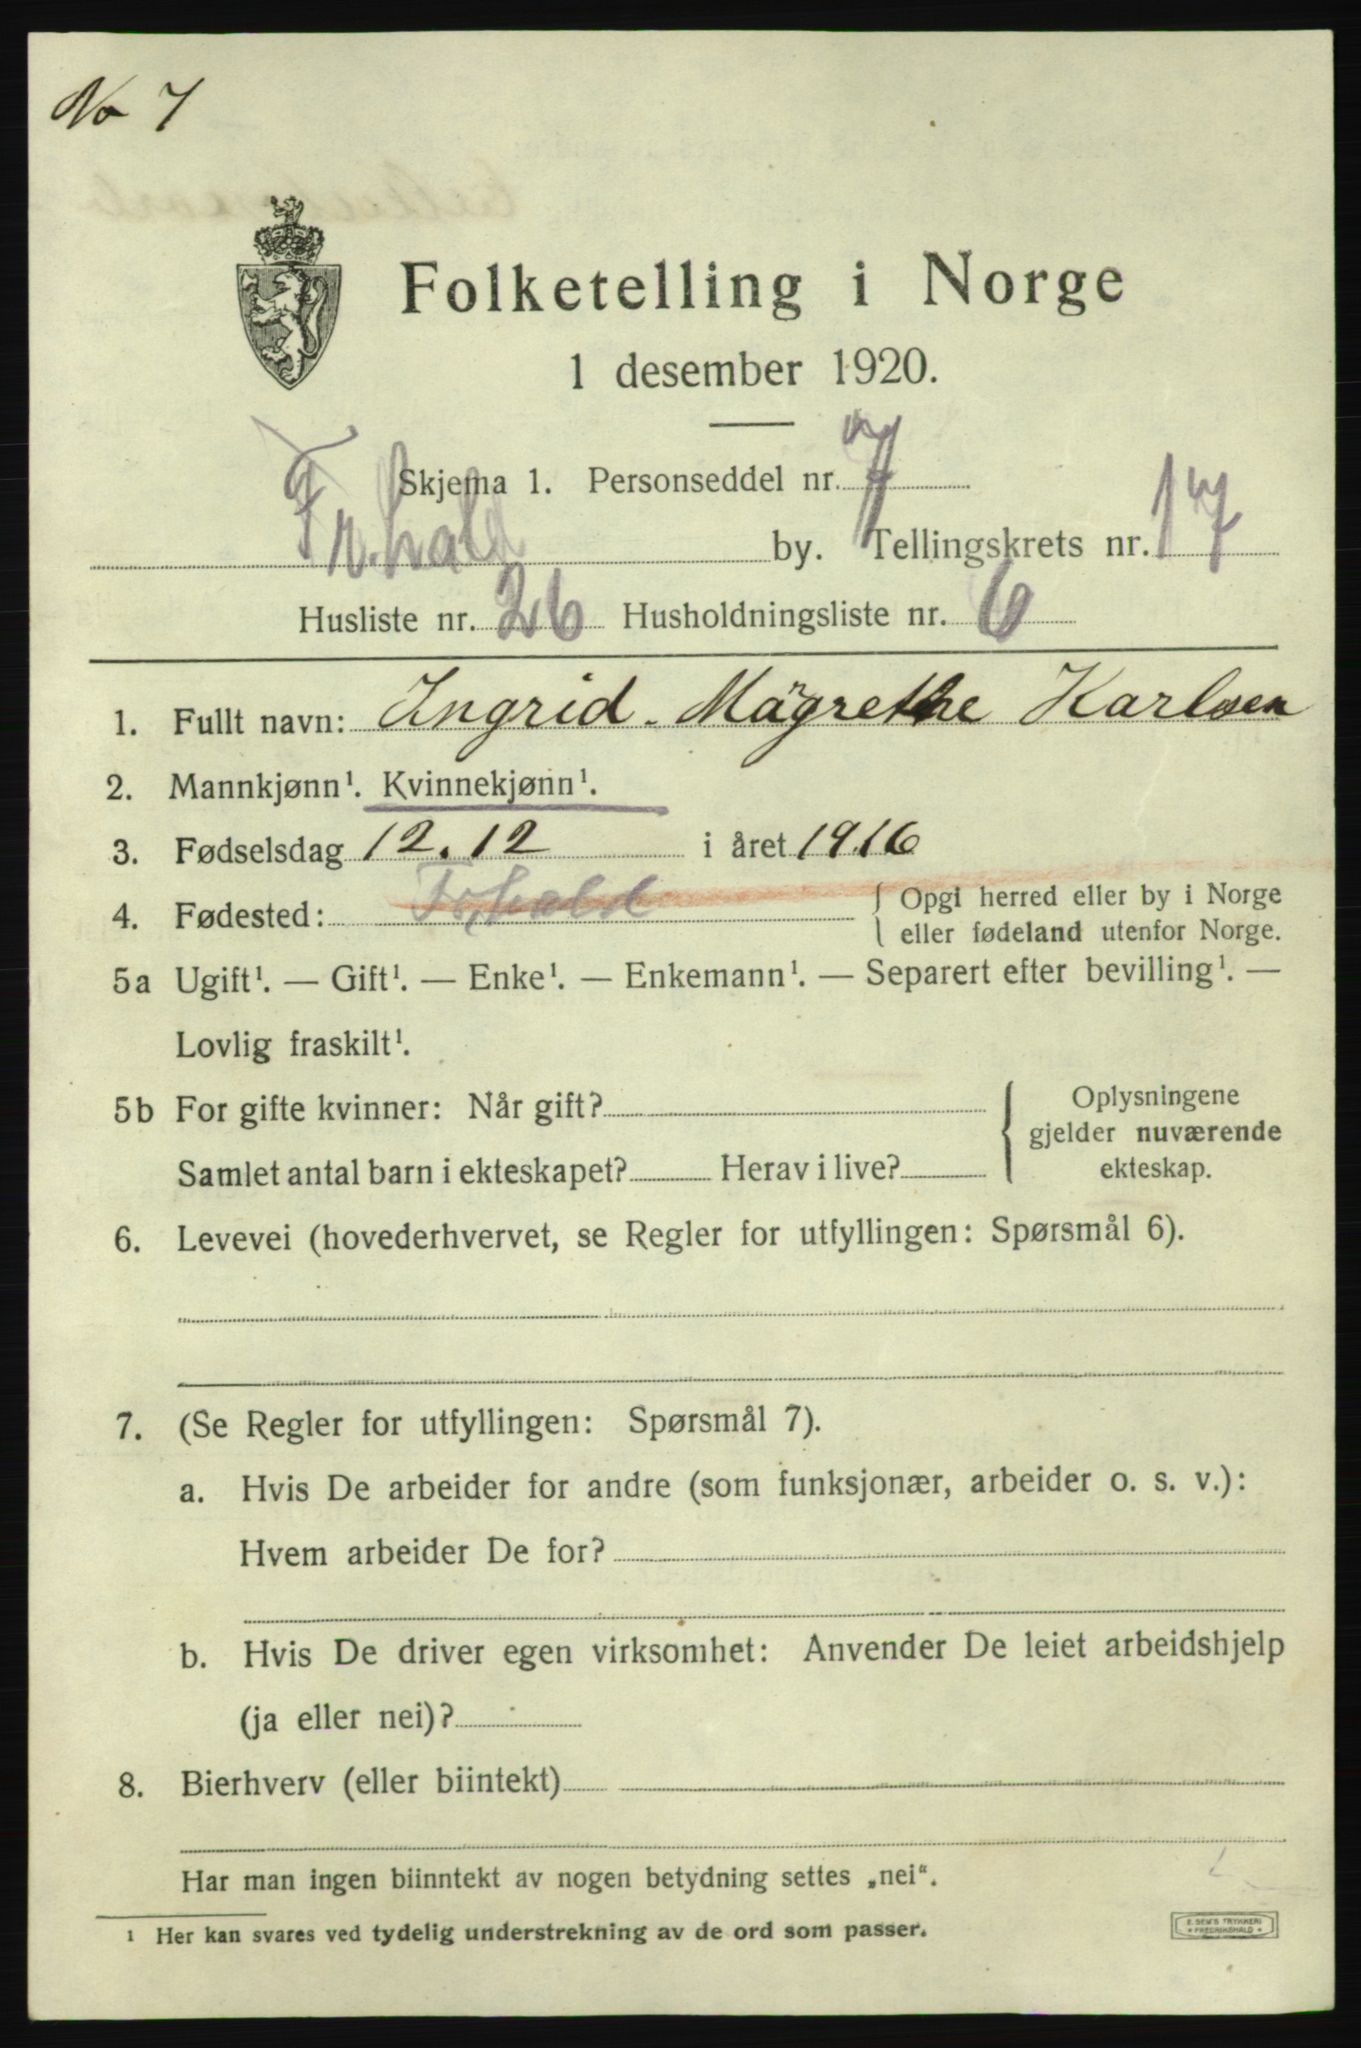 No 7
Folketelling i Norge
1 desember 1920.
Skjema 1. Personseddel nr. 7
Fr.hald by. Tellingskrets nr. 17
Husliste nr. 26 Husholdningsliste nr. 6
1. Fullt navn: Ingrid. Magrethe Karlsen
2. Mannkjønn¹. Kvinnekjønn¹.
3. Fødselsdag 12.12 i året 1916
4. Fødested: Fr.hald { Opgi herred eller by i Norge
eller fødeland utenfor Norge.
5a Ugift¹. — Gift¹. — Enke¹. — Enkemann¹. — Separert efter bevilling¹. —
Lovlig fraskilt¹.
5b For gifte kvinner: Når gift? { Oplysningene
gjelder nuværende
Samlet antal barn i ekteskapet? Herav i live? ekteskap.
6. Levevei (hovederhvervet, se Regler for utfyllingen: Spørsmål 6).
7. (Se Regler for utfyllingen: Spørsmål 7).
a. Hvis De arbeider for andre (som funksjonær, arbeider o. s. v.):
Hvem arbeider De for?
b. Hvis De driver egen virksomhet: Anvender De leiet arbeidshjelp
(ja eller nei)?
8. Bierhverv (eller biintekt)
Har man ingen biinntekt av nogen betydning settes „nei“.
¹ Her kan svares ved tydelig understrekning av de ord som passer.
E. SEM'S TRYKKERI
* FREDRIKSHALD *